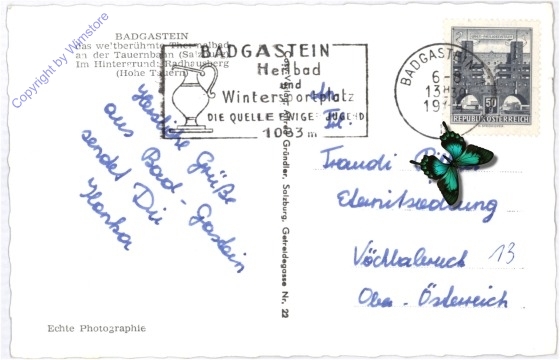 Copyright by Wimstore
BADGASTEIN
das weltberühmte Thermalbad
an der Tauernbahn (Salzburg)
Im Hintergrund: Radhausberg
(Hohe Tauern)
BADGASTEIN
Heilbad
und
Wintersportplatz
DIE QUELLE EWIGER JUGEND
1083 m
BADGASTEIN
6-8
13
19
50
REPUBLIK ÖSTERREICH
Herzliche Grüße
aus Bad-Gastein
sendet Dir
Ilonka
Gründler, Salzburg, Getreidegasse Nr. 22
Frl.:
Traudi
Eternitsiedlung
Vöcklabruck 13
Ober-Österreich
Echte Photographie